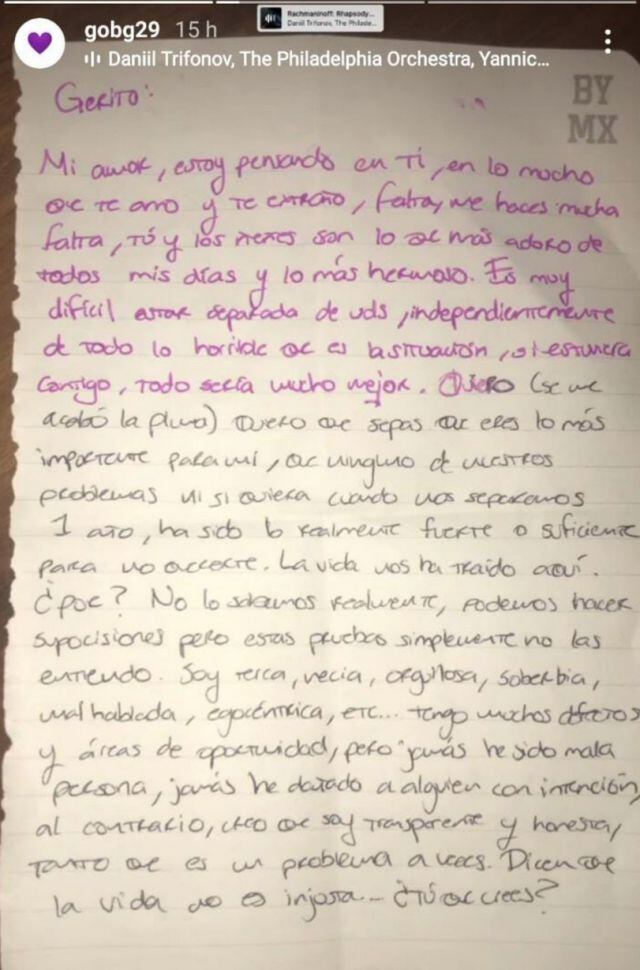 Rachmaninoff: Rhapsody...
Daniil Trifonov, The Philade...
gobg29 15 h
Daniil Trifonov, The Philadelphia Orchestra, Yannic...
BY
MX
Gerito:
Mi amor, estoy pensando en Ti, en lo mucho
qe te amo y te extraño, faltay me haces mucha
falta, tú y los nenes son lo qe más adoro de
todos mis días y lo más hermoso. Es muy
difícil estar separada de uds, independientemente
de todo lo horrible qe es la situación, si estuviera
contigo, todo sería mucho mejor. Quiero (se me
acabó la pluma) Quiero qe sepas qe eres lo más
importante para mi, qe ninguno de nuestros
problemas ni si quiera cuando nos separamos
1 año, ha sido lo realmente fuerte o suficiente
para no qererte. La vida nos ha traido aquí.
¿poe? No lo sabemos realmente, podemos hacer
suposiciones pero estas pruebas simplemente no las
entiendo. Soy terca, necia, orgullosa, soberbia,
mal hablada, egocéntrica, etc... tengo muchos defectos
y áreas de oportunidad, pero jamás he sido mala
persona, jamás he dañado a alguien con intención,
al contrario, creo qe soy transparente y honesta,
tanto qe es un problema a veces. Dicen qe
la vida no es injusta... ¿Tú qe crees?